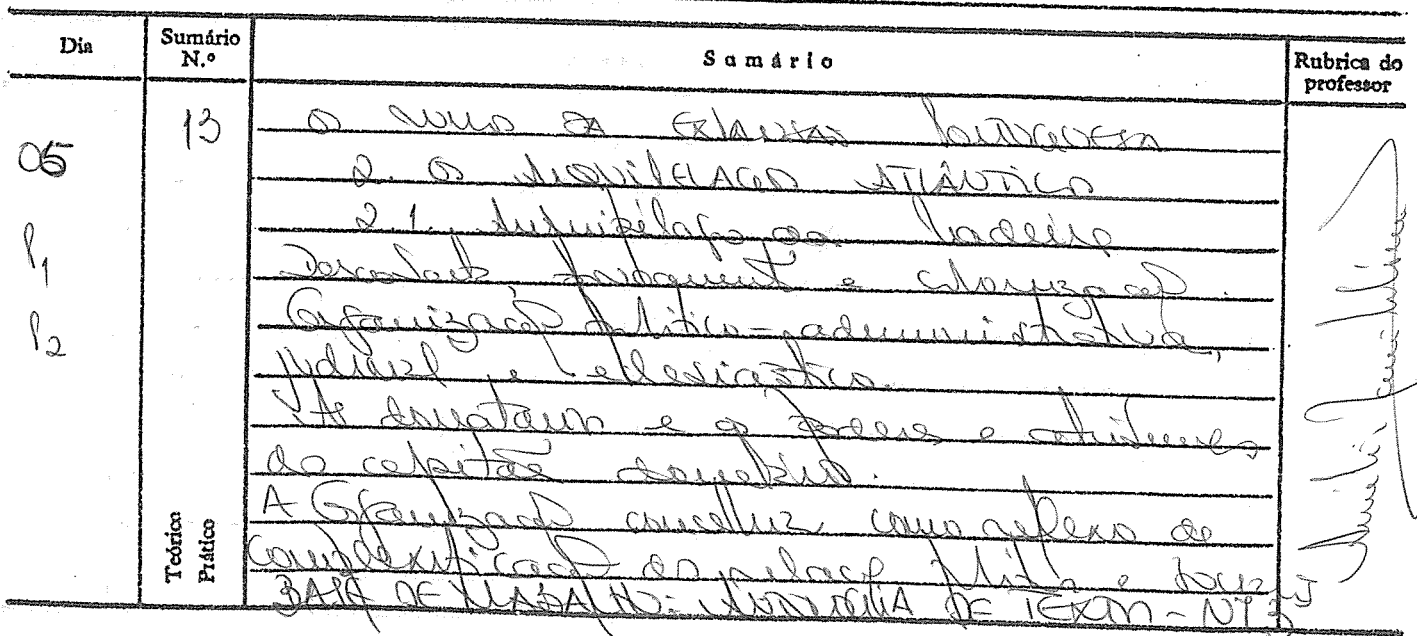 Dia Sumário N.º Sumário Rubrica do professor
05 13 O da Expansão Portuguesa
P1 2. O Arquipélago Atlântico
P2 2.1. Arquipélago da Madeira
Descobert, povoament e colonização.
Organização político-administrativa,
judicial e eclesiástica.
As donatarias e os poderes e atribuições
do capitão donatário.
A Organização concelhia como reflexo da
complexificação das relações
Teórico
Prático
BASE DE TRABALHO: ANTOLOGIA DE TEXTO - Nº 3